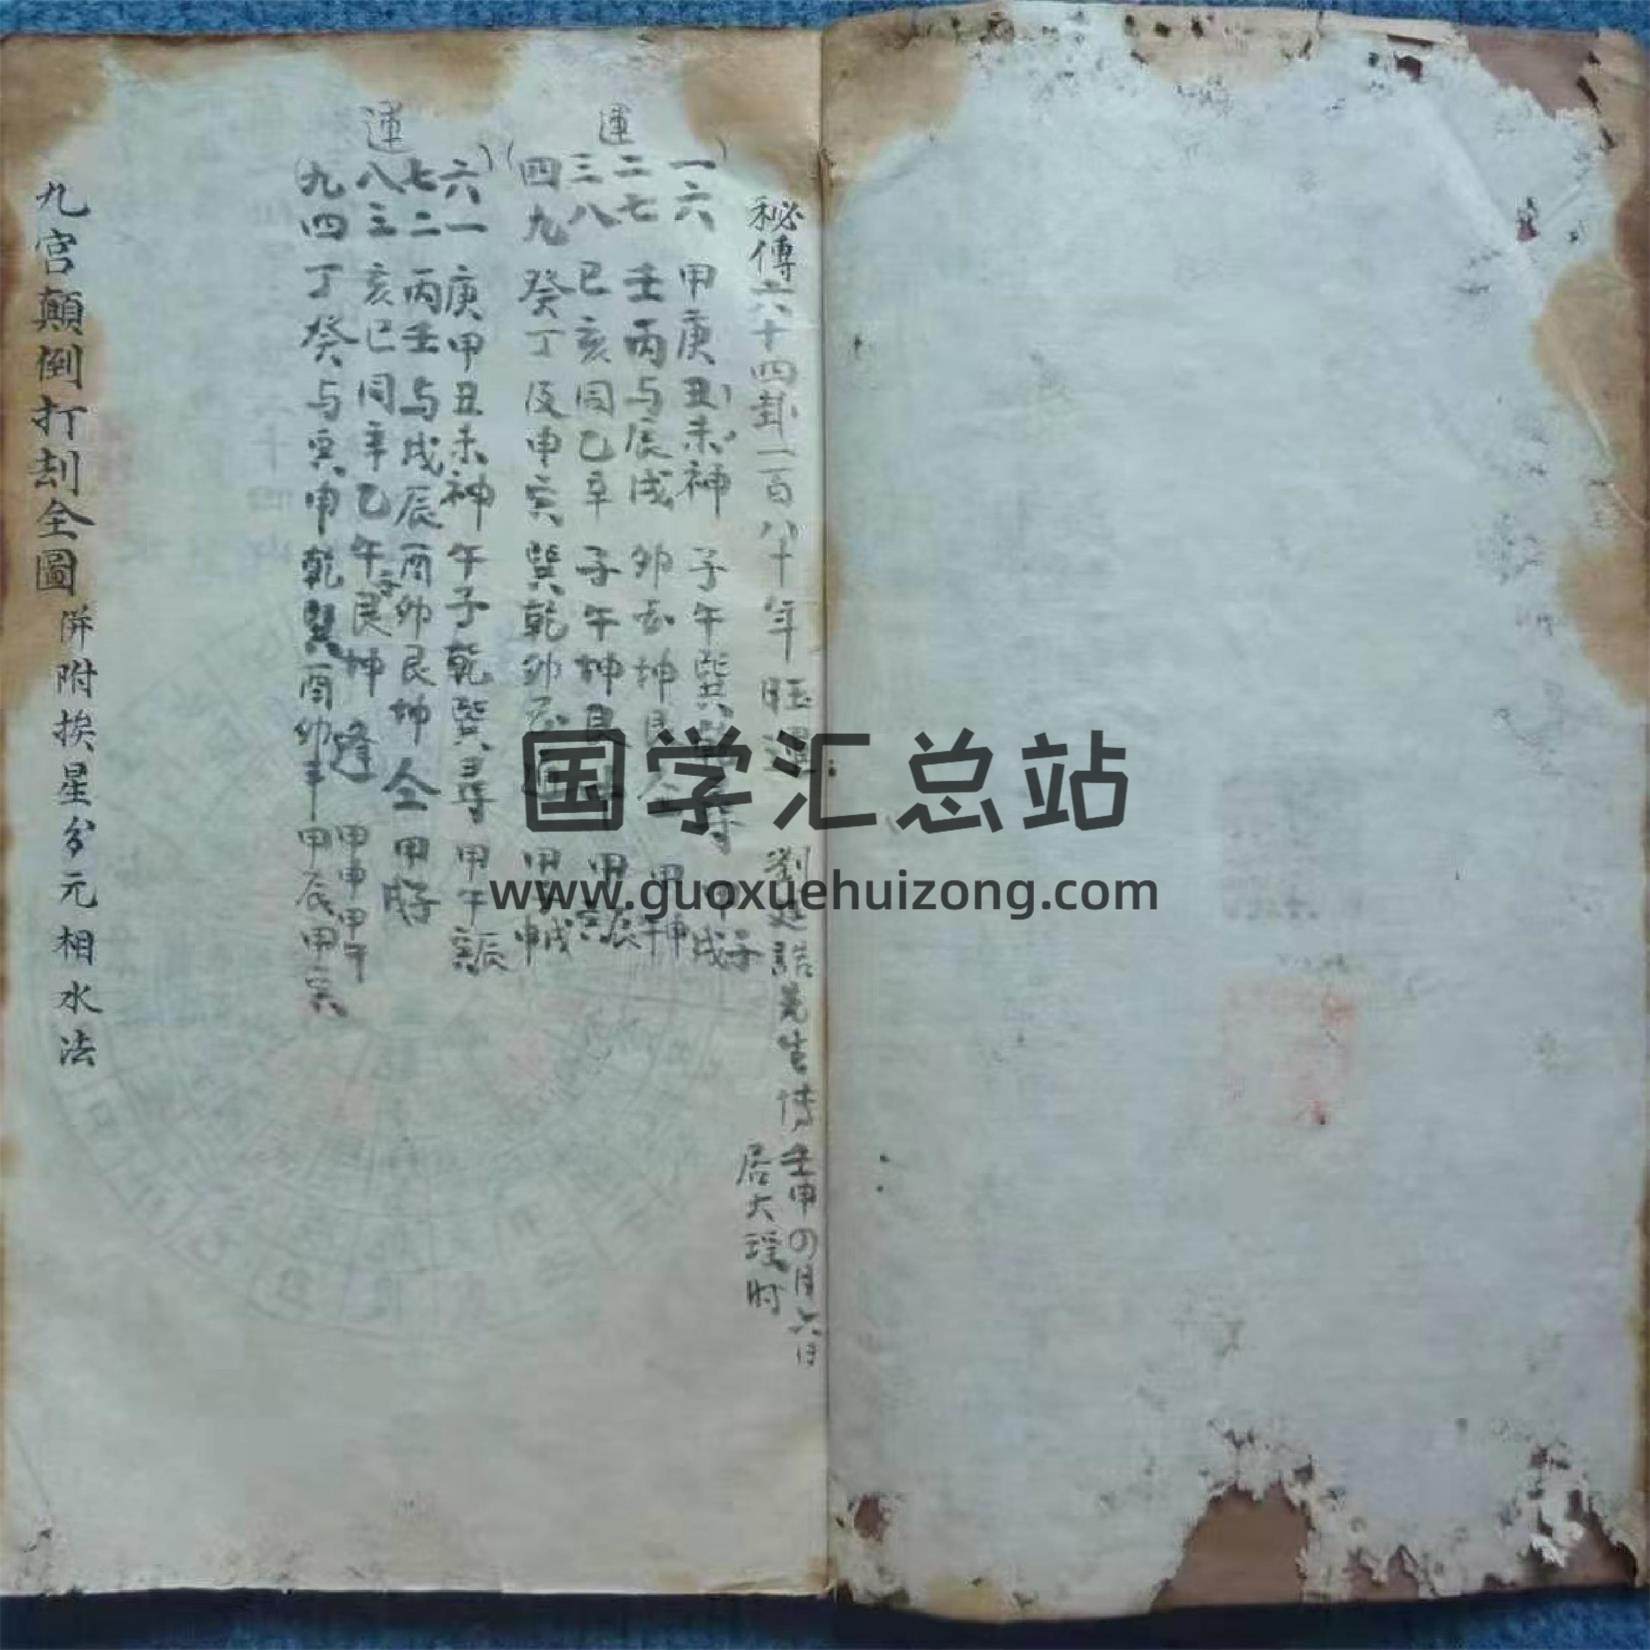 秘傳六十四卦一百八十年旺運 劉 先生傳 壬申の月六日
居大瑶时
運
一六 甲庚丑未神 子午巽乾 甲子 甲戌
二七 壬丙与辰戌 卯 坤艮仝 甲申 甲午
三八 巳亥同乙辛 子午坤艮 甲辰 甲寅
四九 癸丁及申寅 巽乾卯 甲申 甲戌
運
六一 庚甲丑未神 午子乾巽寻 甲午 甲辰 甲寅
七二 丙壬与戌辰 酉卯艮坤仝 甲子 甲戌
八三 亥巳同辛乙 午子艮坤逢 甲申甲午
九四 丁癸与寅申 乾巽酉卯 甲辰甲寅
九宮顛倒打刦全圖 併附挨星分元相水法
国学汇总站
www.guoxuehuizong.com